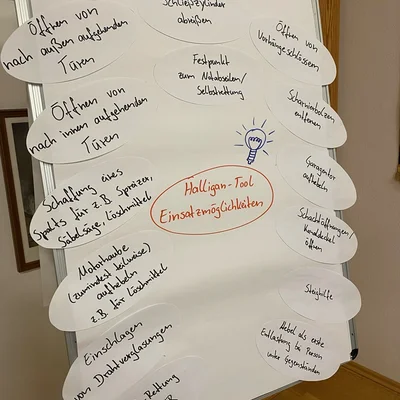 Schließzylinder
abreißen
Öffnen von
nach außen aufgehenden
Türen
Festpunkt
zum Notabseilen/
Selbstrettung
Öffnen von
Vorhängeschlössern
Öffnen von
nach innen aufgehenden
Türen
Scharnierbolzen
entfernen
Halligan-Tool
Einsatzmöglichkeiten
Garagentor
aufhebeln
Schaffung eines
Spalts für z.B. Spreizer,
Säbelsäge, Löschmittel
Schachtöffnungen/
Kanaldeckel
öffnen
Motorhaube
(zumindest teilweise)
aufhebeln
z.B. für Löschmittel
Steighilfe
Einschlagen
von Drahtverglasungen
Hebel als erste
Entlastung bei Person
unter Gegenständen
Rettung